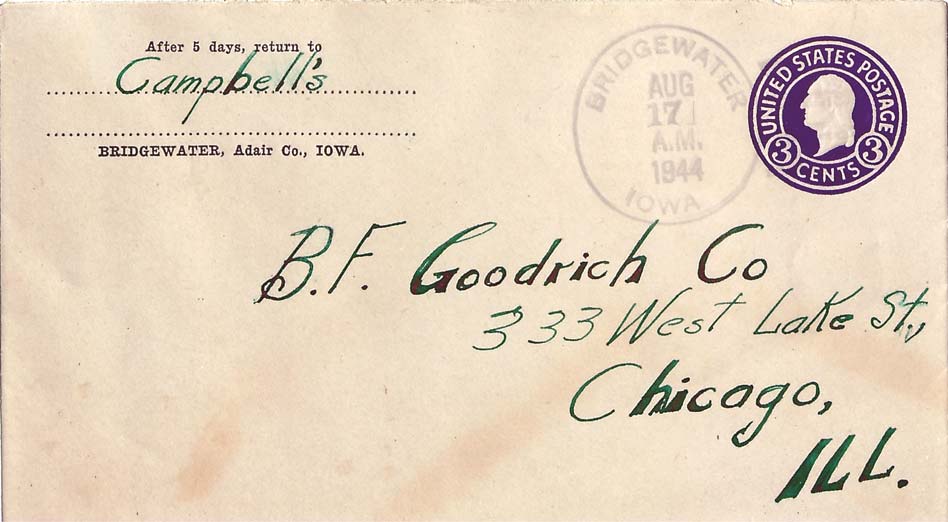 After 5 days, return to
Campbell's
BRIDGEWATER, Adair Co., IOWA.
BRIDGEWATER
AUG
17
A.M.
1944
IOWA
UNITED STATES POSTAGE
3 CENTS 3
B.F. Goodrich Co
333 West Lake St.,
Chicago,
ILL.